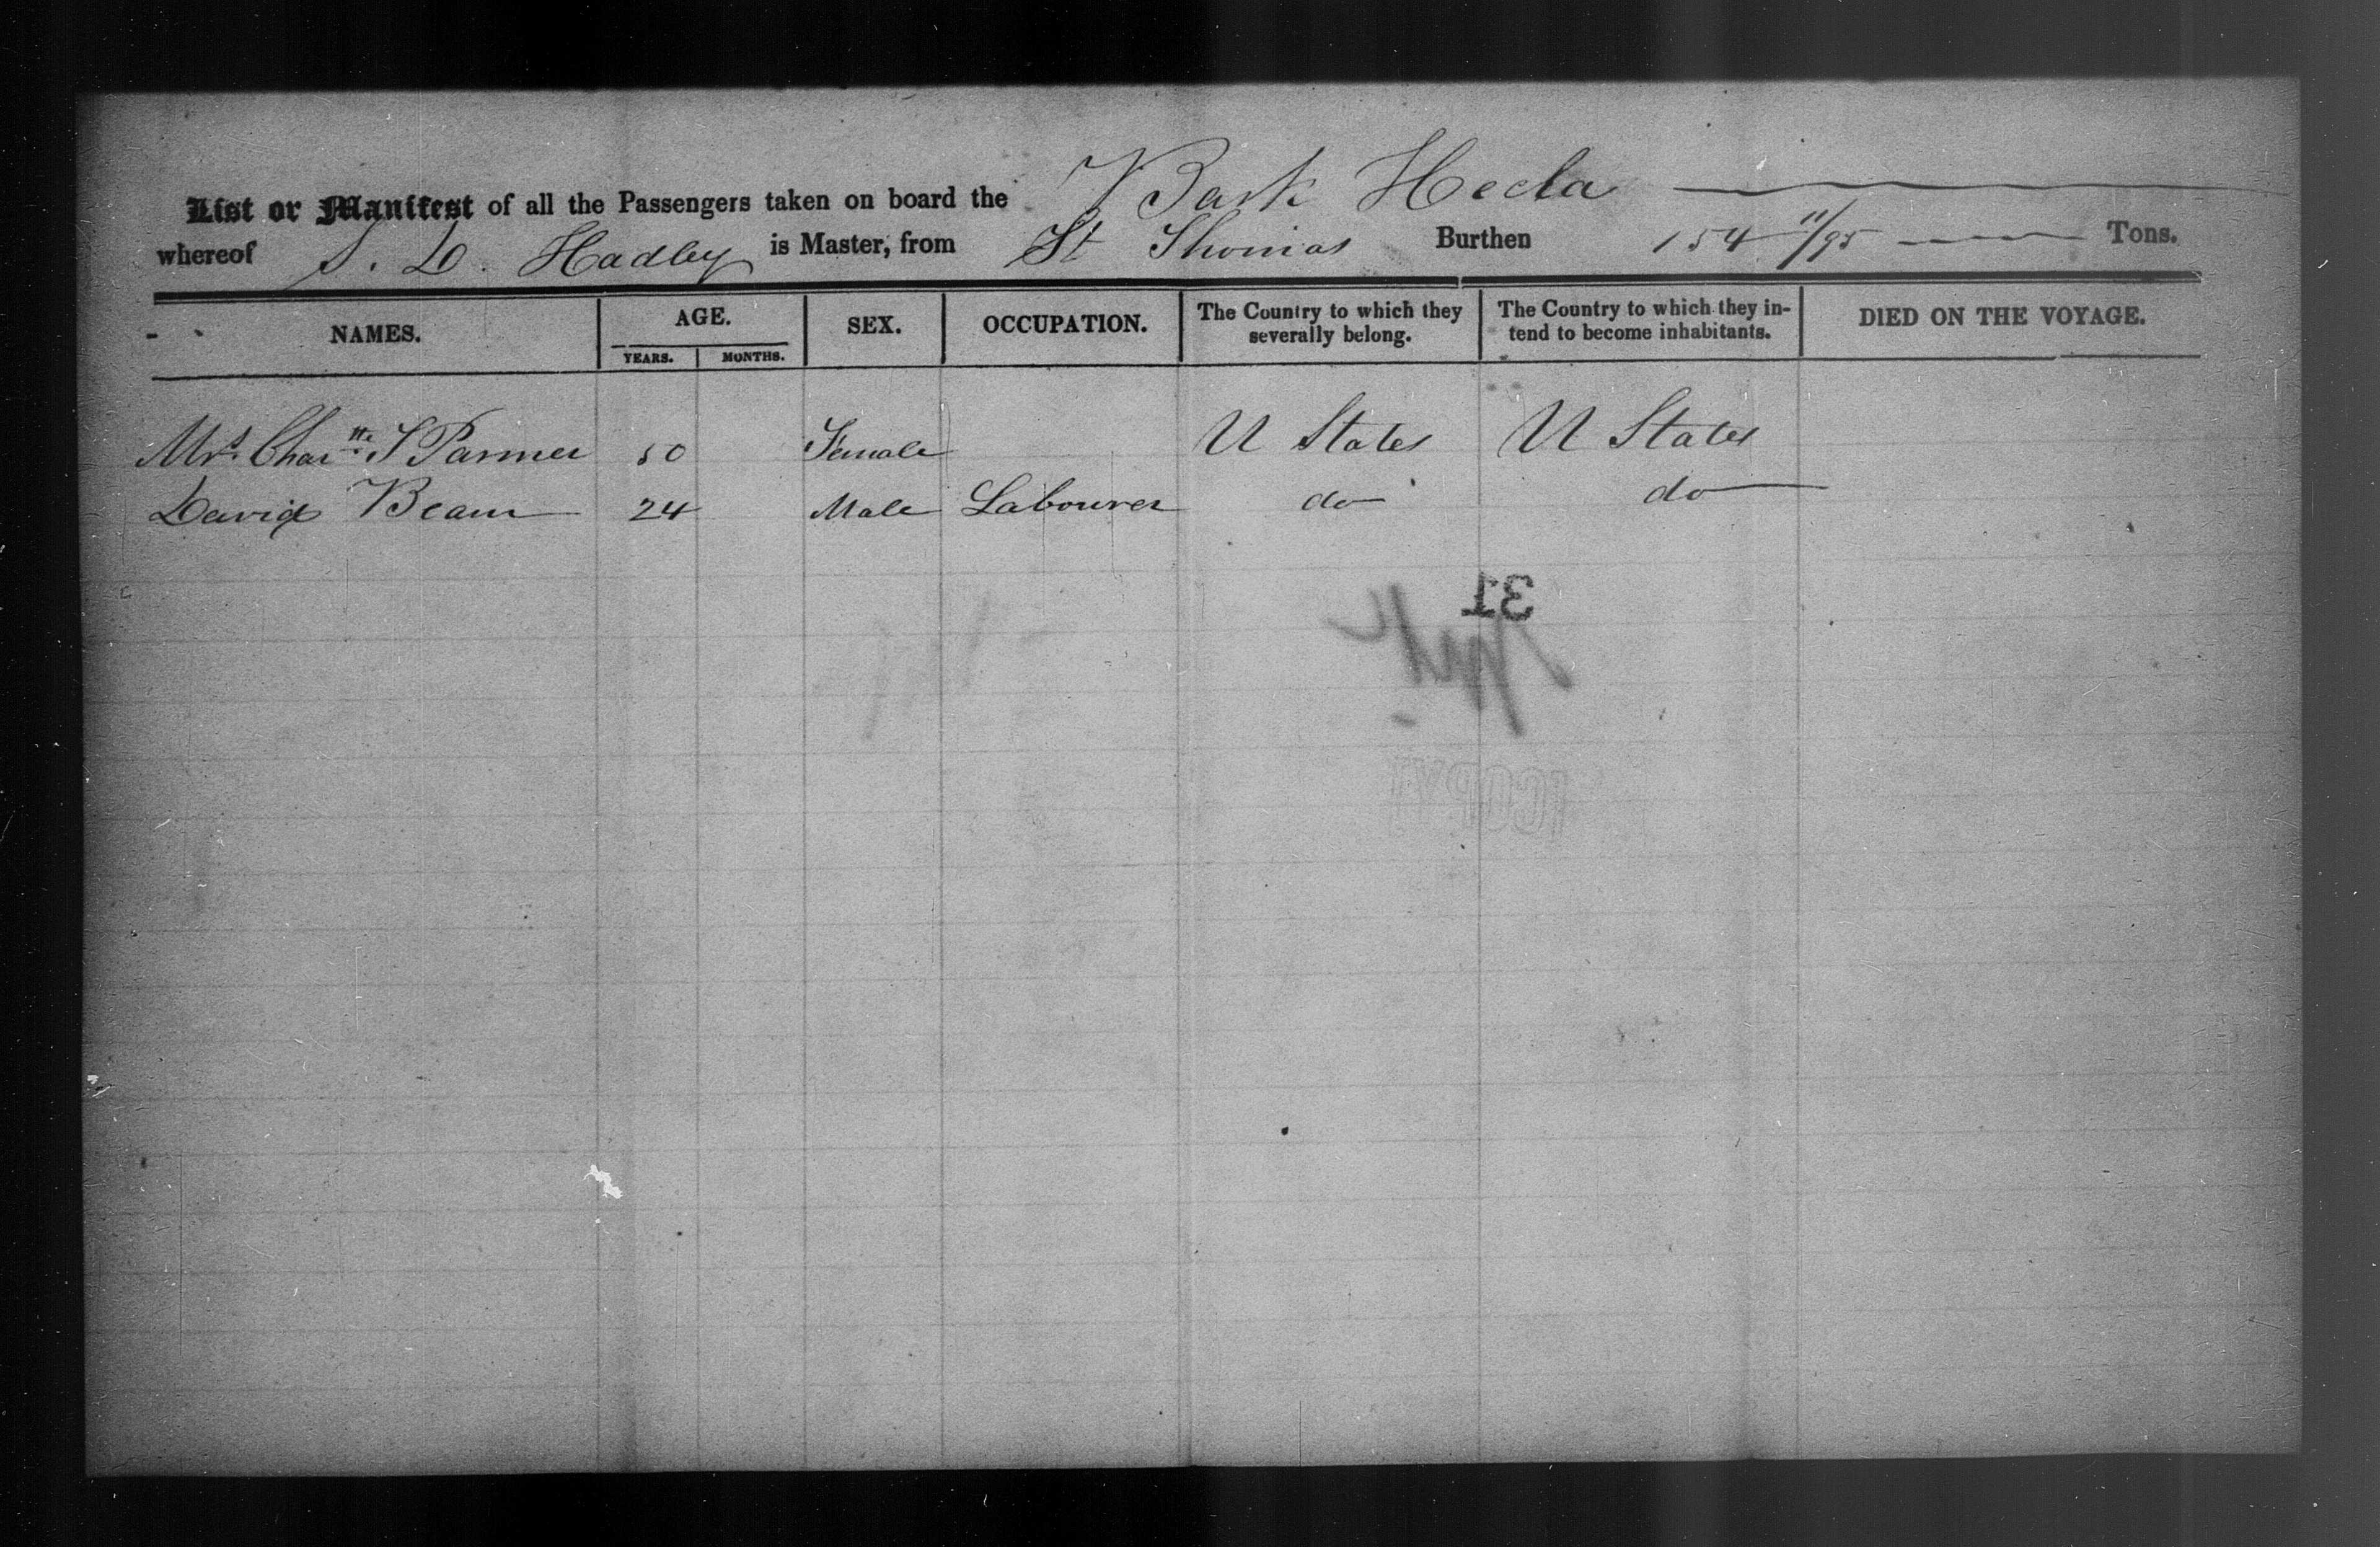 List or Manifest of all the Passengers taken on board the Bark Hecla
whereof S. D. Hadley is Master, from St Thomas Burthen 154 11/95 Tons.
NAMES. AGE. SEX. OCCUPATION. The Country to which they severally belong. The Country to which they in-tend to become inhabitants. DIED ON THE VOYAGE.
YEARS. MONTHS.
Mrs. Chartte. S Parmer 50 Female U States U States
David Beam 24 Male Labourer do do
31
COPY